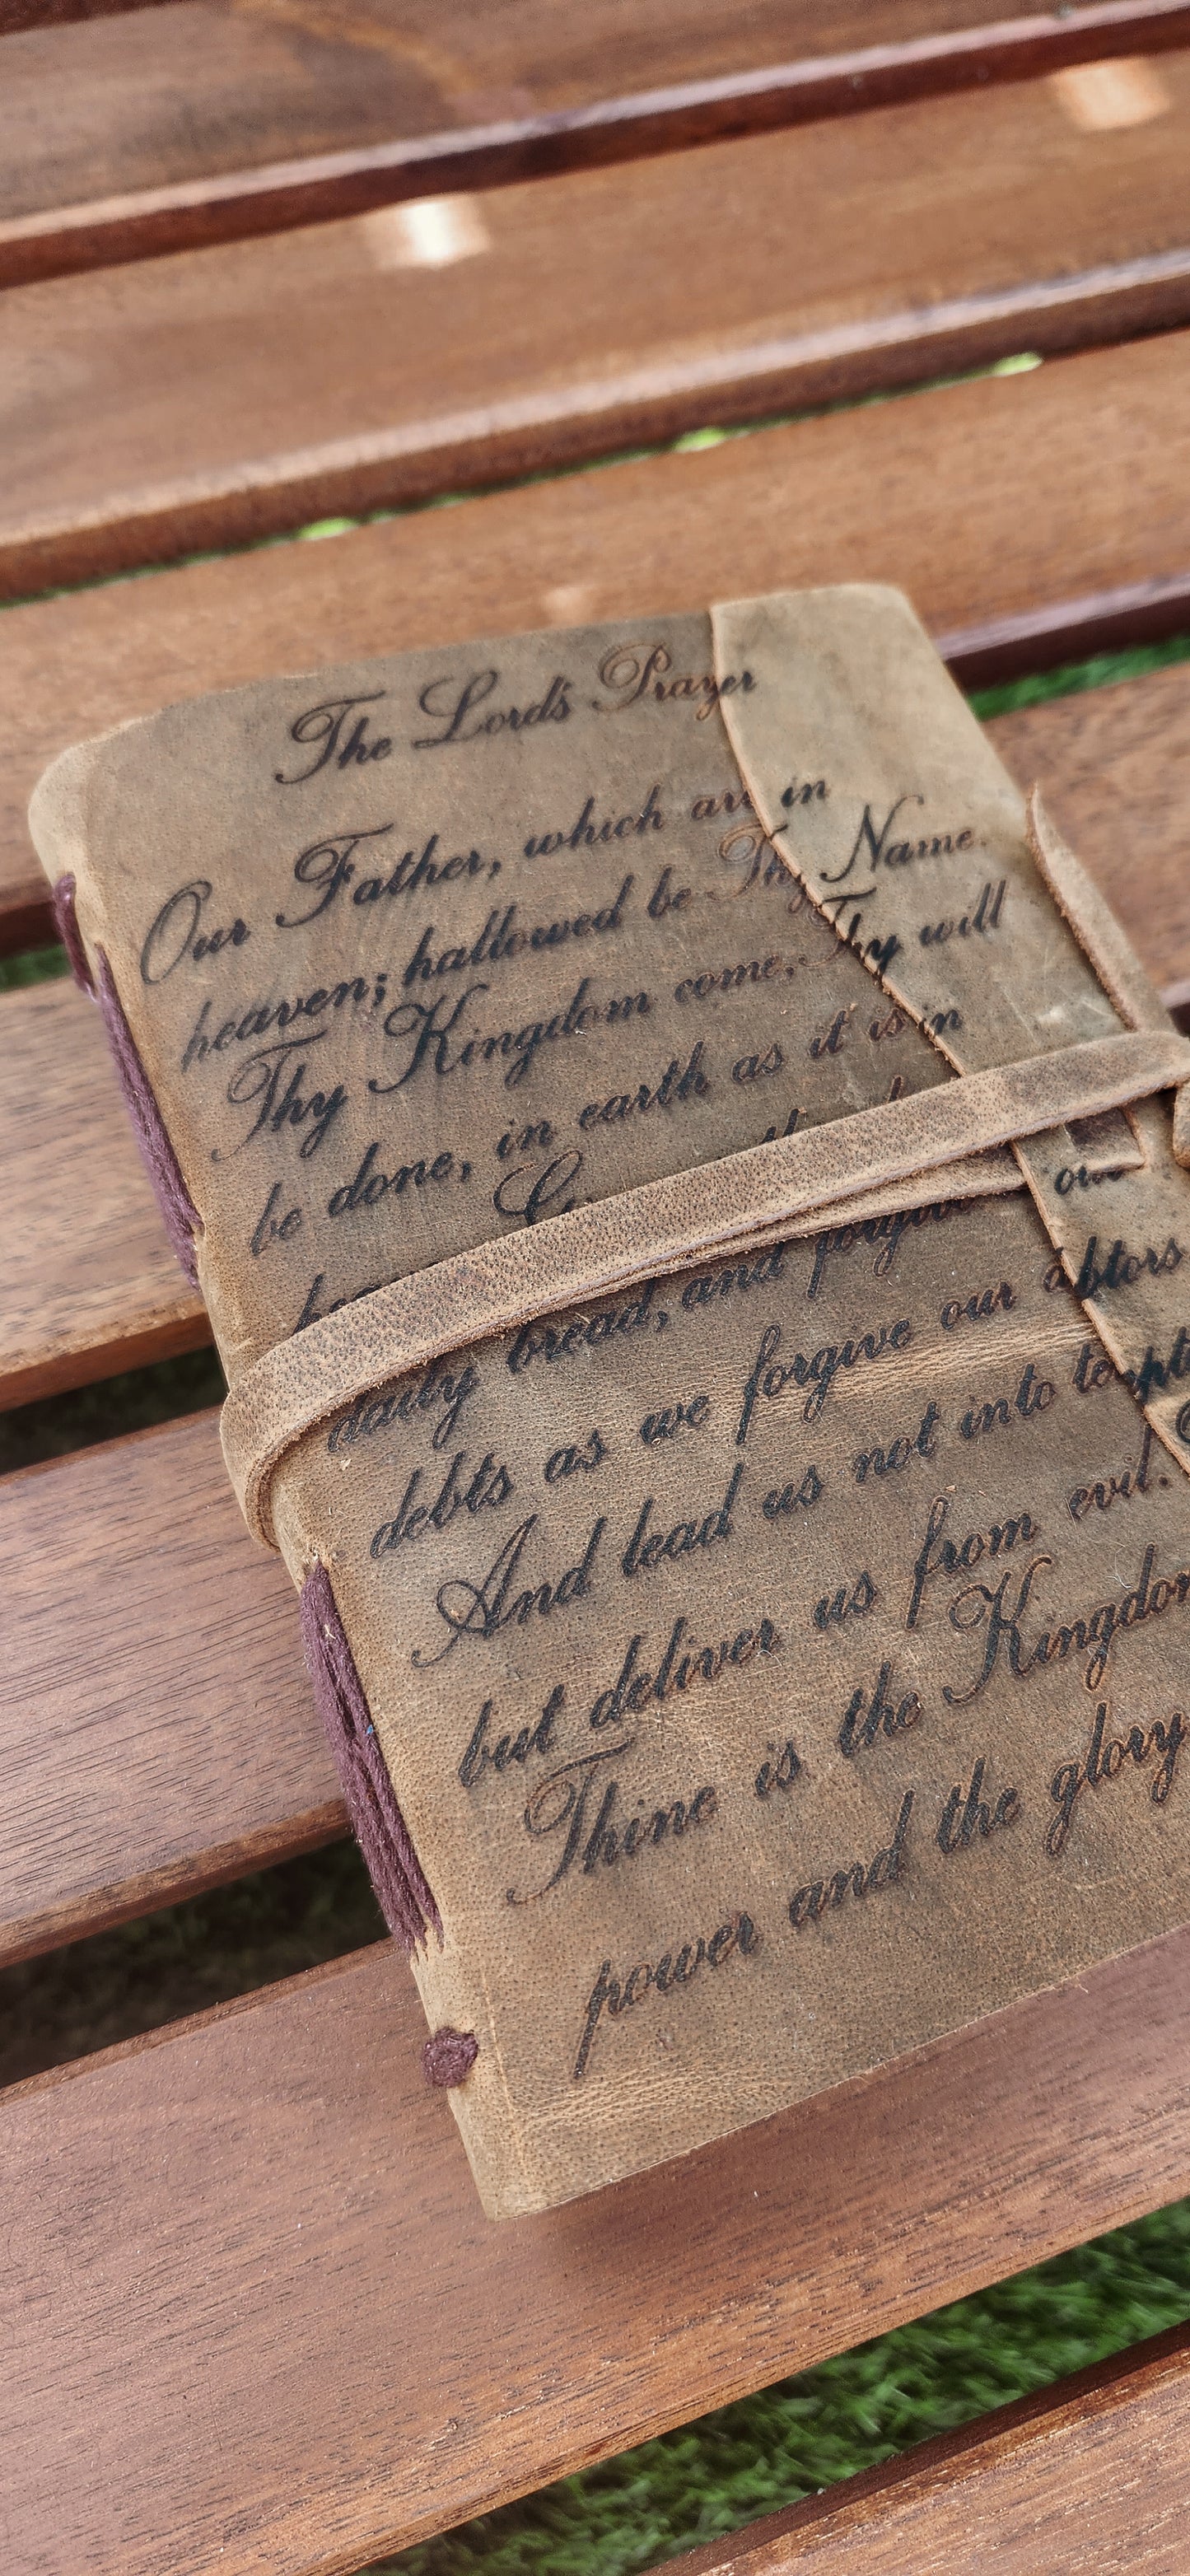 The Lord's Prayer
Our Father, which are in
heaven; hallowed be Thy Name.
Thy Kingdom come. Thy will
be done, in earth as it is in
daily bread, and forgive our
debts as we forgive our
And lead us not into
but deliver us from evil.
Thine is the Kingdom
power and the glory